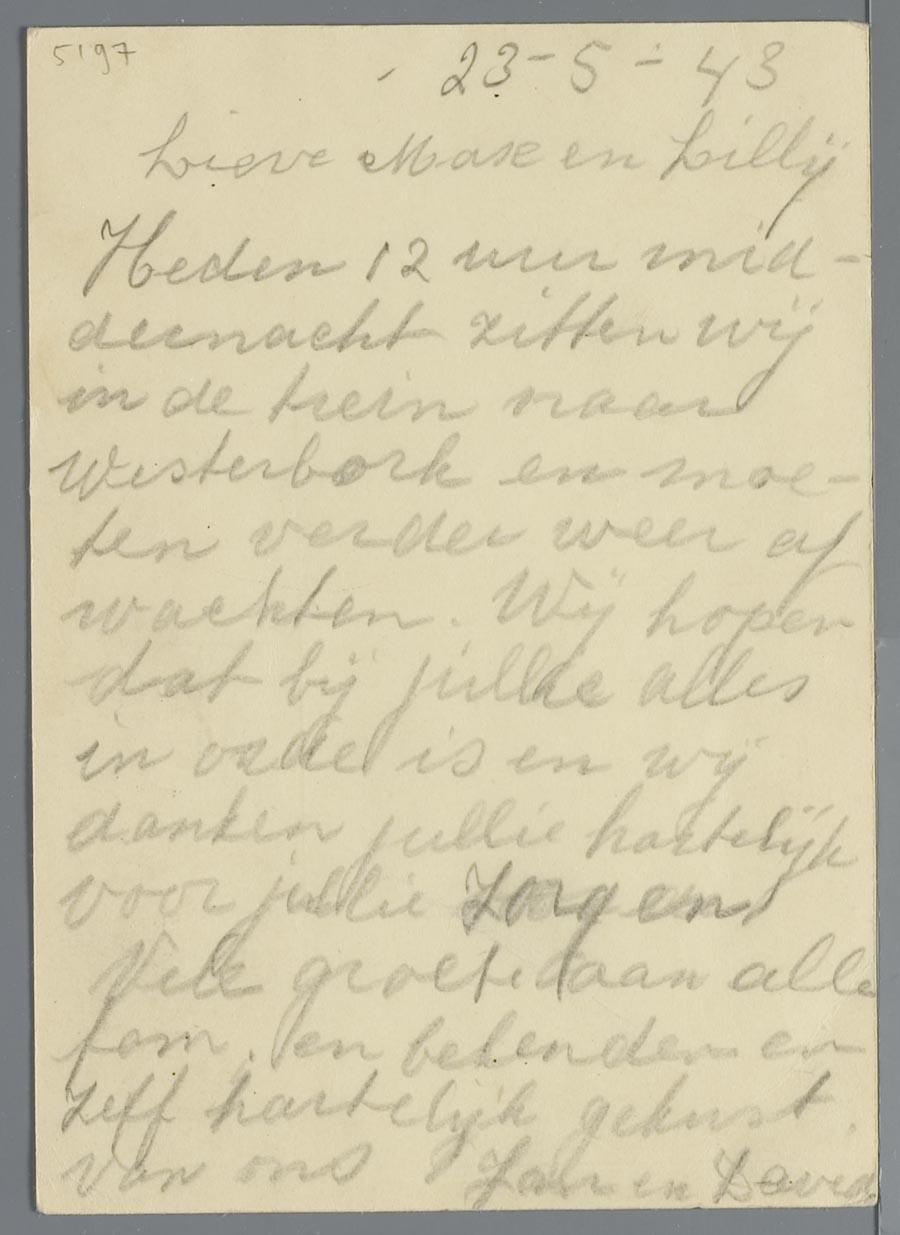 5197
23-5-43
Lieve Max en Lillÿ
Heden 12 uur mid-
dernacht zitten wÿ
in de trein naar
Westerbork en moe-
ten verder weer af
wachten. Wÿ hopen
dat bÿ jullie alles
in orde is en wÿ
danken jullie hartelÿk
voor jullie zorgen
Vele groeten aan alle
fam. en bekenden en
zelf hartelÿk gekust.
van ons en David